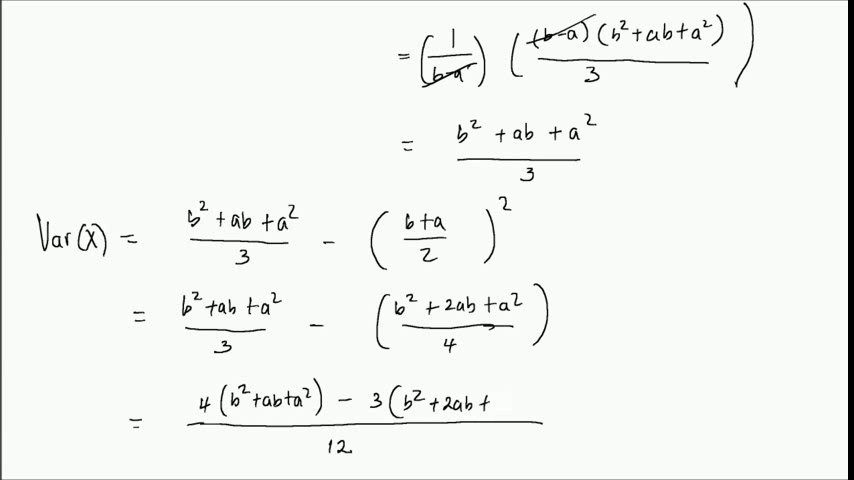 = (1/(b-a)) ((b-a)(b²+ab+a²)/3)
= (b²+ab+a²)/3
Var(X) = (b²+ab+a²)/3 - ((b+a)/2)²
= (b²+ab+a²)/3 - ((b²+2ab+a²)/4)
= (4(b²+ab+a²) - 3(b²+2ab+)/12